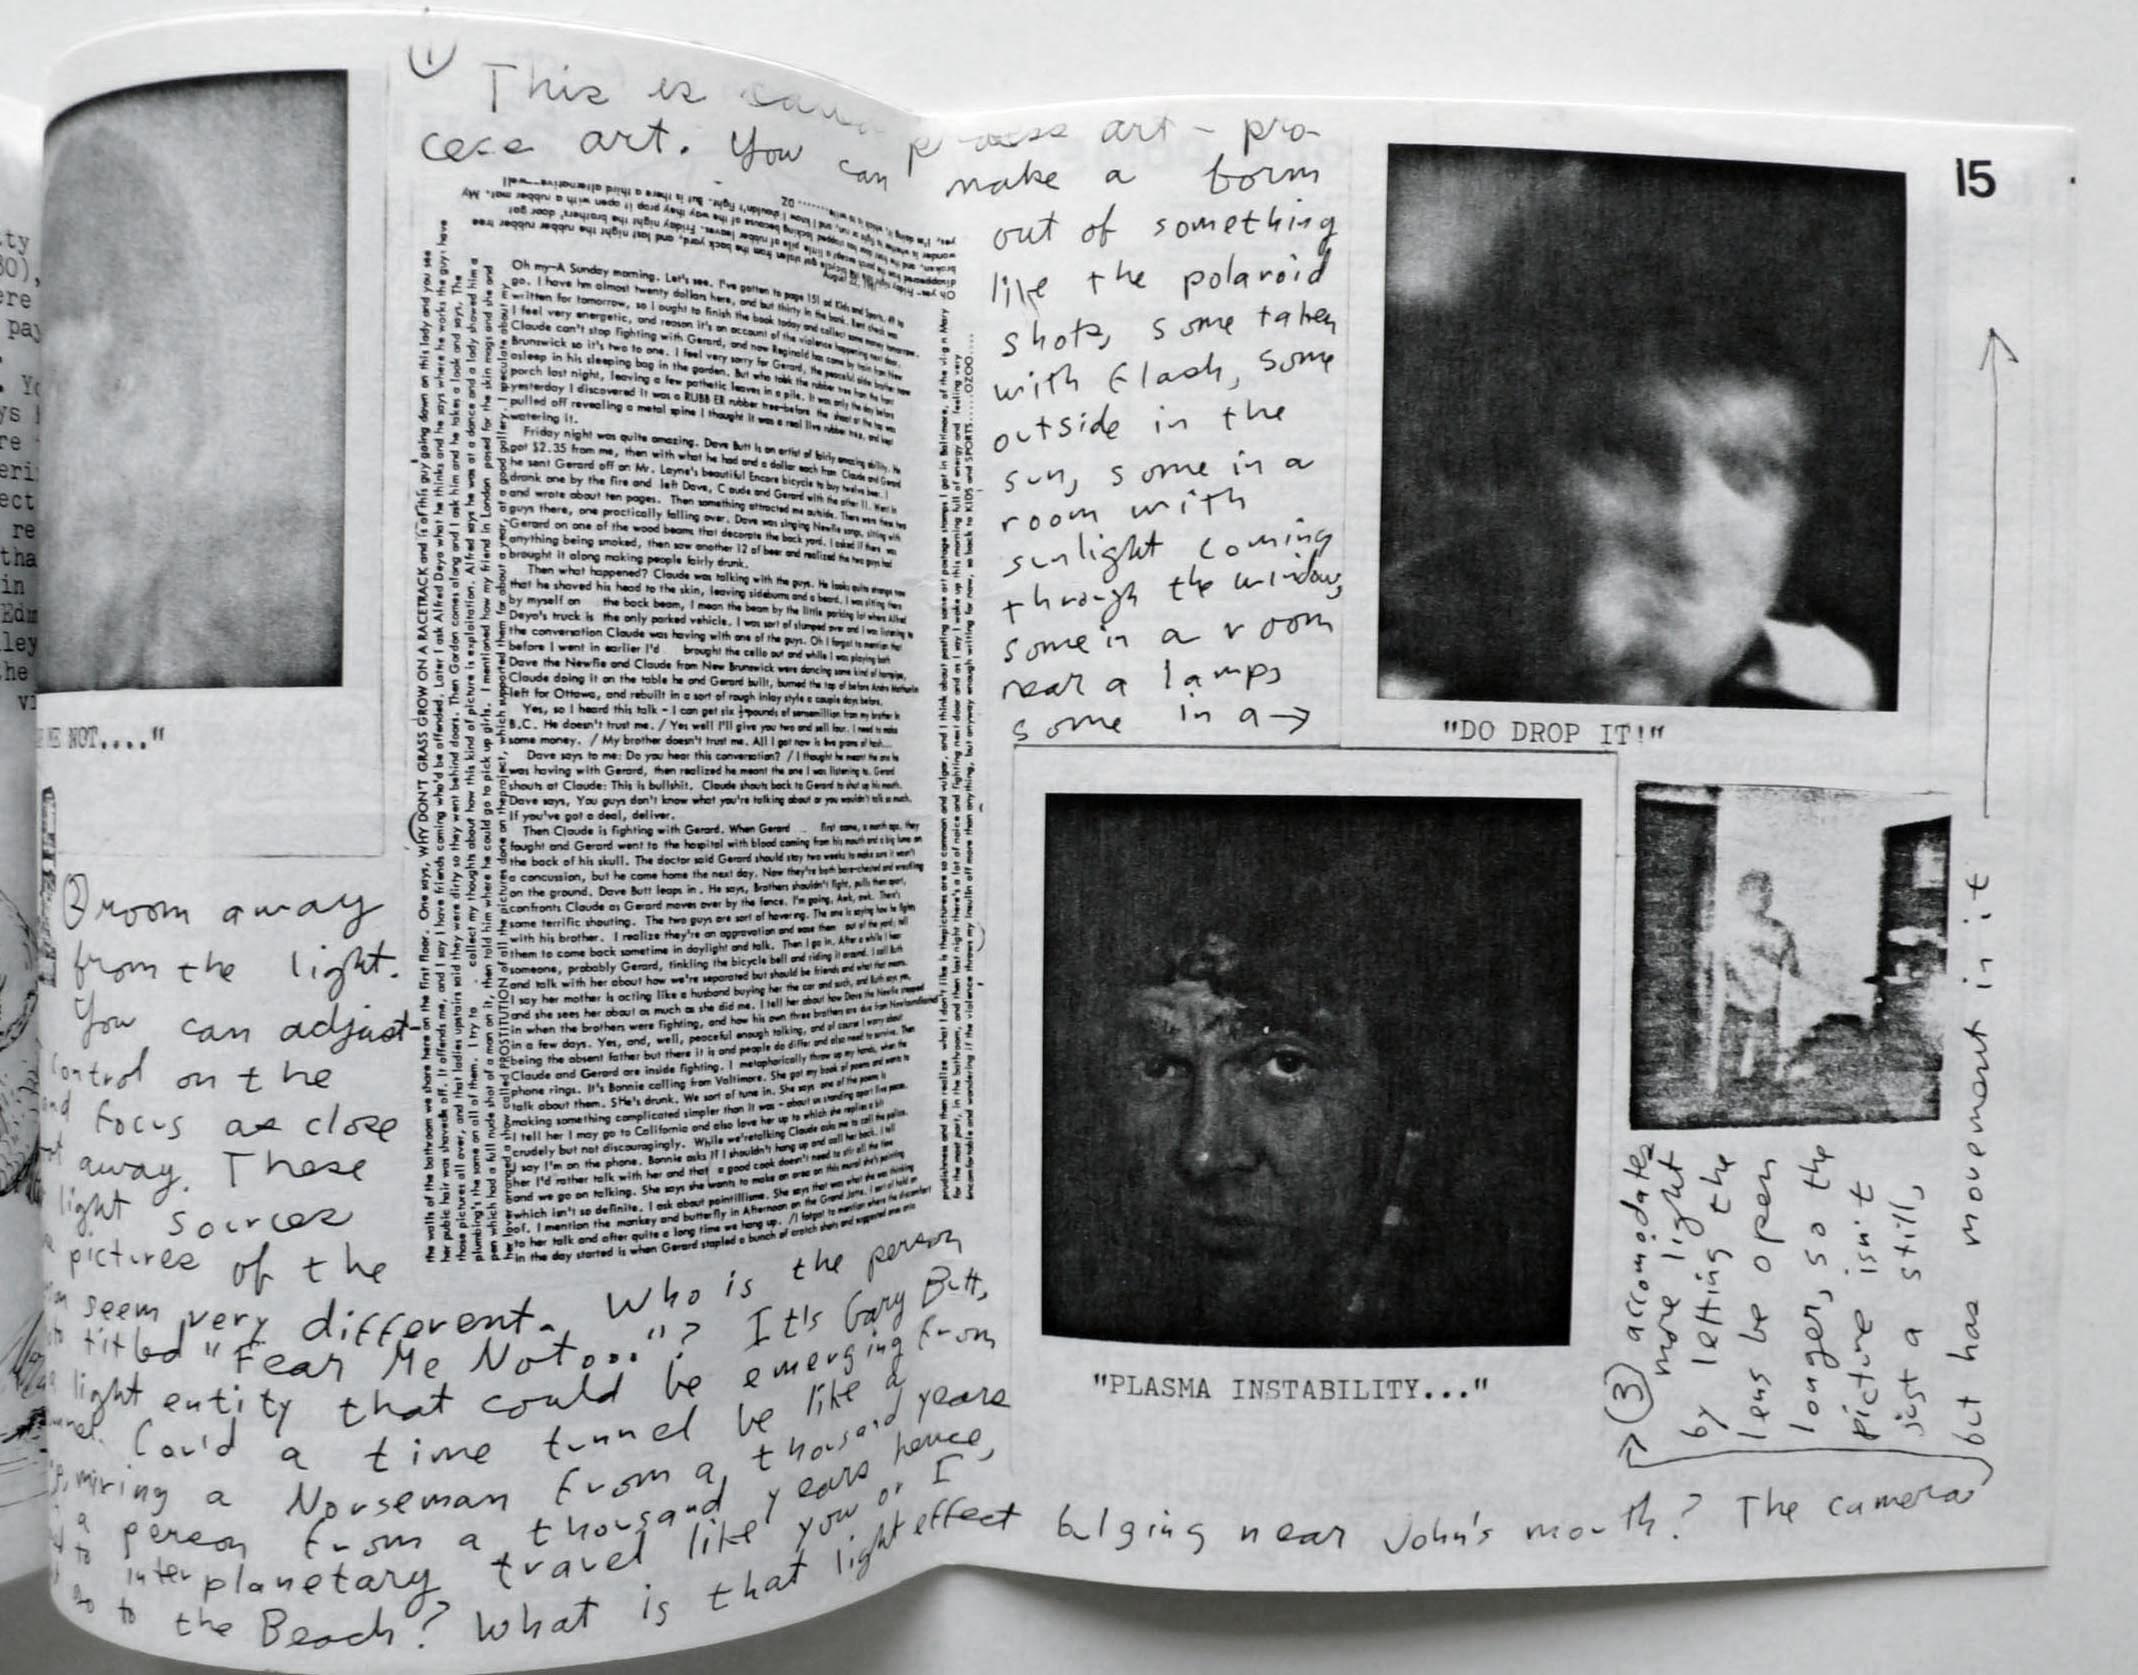 15
① This is called process art - pro-
cess art. You can make a form
out of something
like the polaroid
shots, some taken
with flash, some
outside in the
sun, some in a
room with
sunlight coming
through the window,
some in a room
near a lamp,
some in a →
② room away
from the light.
You can adjust
control on the
and focus as close
away. These
light sources
pictures of the
seem very different. Who is the person
titled "Fear Me Not..."? It's Gary Butt,
light entity that could be emerging from
Could a time tunnel be like a
a Norseman from a thousand years
a person from a thousand years hence,
to interplanetary travel like you or I
go to the Beach? What is that light effect bulging near John's mouth? The camera
③ accomodates
more light
by letting the
lens be open
longer, so the
picture isn't
just a still,
but has movement in it
ME NOT...."
"DO DROP IT!"
"PLASMA INSTABILITY..."
Oh my—A Sunday morning. Let's see. I've gotten to page 151 od Kids and Sports, 49 to
go. I have hm almost twenty dollars here, and but thirty in the bank. Rent check was
written for tomorrow, so I ought to finish the book today and collect some money tomorrow.
I feel very energetic, and reason it's an account of the violence happening next door.
Claude can't stop fighting with Gerard, and now Reginald has come by train from New
Brunswick so it's two to one. I feel very sorry for Gerard, the peaceful
asleep in his sleeping bag in the garden. But who took the rubber tree from the front
porch last night, leaving a few pathetic leaves in a pile. It was only the day before
yesterday I discovered it was a RUBBER rubber tree-before the
pulled off revealing a metal spine I thought it was a real live rubber tree, and kept
watering it.
Friday night was quite amazing. Dave Butt is an artist of fairly amazing ability. He
got $2.35 from me, then with what he had and a dollar each from Claude and Gerard
he sent Gerard off on Mr. Layne's beautiful Encore bicycle to buy twelve beer. I
drank one by the fire and left Dave, Claude and Gerard with the other 11. Went in
and wrote about ten pages. Then something attracted me outside. There were these two
guys there, one practically falling over. Dave was singing Newfie songs, sitting with
Gerard on one of the wood beams that decorate the back yard. I asked if there was
anything being smoked, then saw another 12 of beer and realized the two guys had
brought it along making people fairly drunk.
Then what happened? Claude was talking with the guys. He looks quite strange now
that he shaved his head to the skin, leaving sideburns and a beard. I was sitting there
by myself on the back beam, I mean the beam by the little parking lot where Alfred
Deyo's truck is the only parked vehicle. I was sort of slumped over and I was listening to
the conversation Claude was having with one of the guys. Oh I forgot to mention that
before I went in earlier I'd brought the cello out and while I was playing both
Dave the Newfie and Claude from New Brunswick were dancing some kind of hornpipe,
Claude doing it on the table he and Gerard built, burned the top of before Andre
left for Ottawa, and rebuilt in a sort of rough inlay style a couple days before.
Yes, so I heard this talk - I can get six ½pounds of sensemillion from my brother in
B.C. He doesn't trust me. / Yes well I'll give you two and sell four. I need to make
some money. / My brother doesn't trust me. All I got now is five grams of hash...
Dave says to me: Do you hear this conversation? / I thought he meant the one he
was having with Gerard, then realized he meant the one I was listening to. Gerard
shouts at Claude: This is bullshit. Claude shouts back to Gerard to shut up his mouth.
Dave says, You guys don't know what you're talking about or you wouldn't talk so much.
If you've got a deal, deliver.
Then Claude is fighting with Gerard. When Gerard first came, a month ago, they
fought and Gerard went to the hospital with blood coming from his mouth and a big lump on
the back of his skull. The doctor said Gerard should stay two weeks to make sure it wasn't
a concussion, but he came home the next day. Now they're both bare-chested and wrestling
on the ground. Dave Butt leaps in. He says, Brothers shouldn't fight, pulls them apart,
confronts Claude as Gerard moves over by the fence. I'm going, Awk, awk. There's
some terrific shouting. The two guys are sort of hovering. The one is saying how he fights
with his brother. I realize they're an aggravation and ease them out of the yard, tell
them to come back sometime in daylight and talk. Then I go in. After a while I hear
someone, probably Gerard, tinkling the bicycle bell and riding it around. I call Ruth
and talk with her about how we're separated but should be friends and what that means.
I say her mother is acting like a husband buying her the car and such, and Ruth says yes,
and she sees her about as much as she did me. I tell her about how Dave the Newfie stepped
in when the brothers were fighting, and how his own three brothers are due from Newfoundland
in a few days. Yes, and, well, peaceful enough talking, and of course I worry about
being the absent father but there it is and people do differ and also need to survive. Then
Claude and Gerard are inside fighting. I metaphorically throw up my hands, when the
phone rings. It's Bonnie calling from Valtimore. She got my book of poems and wants to
talk about them. SHe's drunk. We sort of tune in. She says one of the poems is
making something complicated simpler than it was - about us standing apart five paces.
I tell her I may go to California and also love her up to which she replies a bit
crudely but not discouragingly. While we'retalking Claude asks me to call the police.
I say I'm on the phone. Bonnie asks if I shouldn't hang up and call her back. I tell
her I'd rather talk with her and that a good cook doesn't need to stir all the time
and we go on talking. She says she wants to make an area on this mural she's painting
which isn't so definite. I ask about pointillisme. She says that was what she was thinking
of. I mention the monkey and butterfly in Afternoon on the Grand Jatte. I sort of hold on
to her talk and after quite a long time we hang up. /I forgot to mention where the discomfort
in the day started is when Gerard stapled a bunch of crotch shots and suggested ones onto
the walls of the bathroom we share here on the first floor. One says, WHY DON'T GRASS GROW ON A RACETRACK and is of this guy going down on this lady and you see
her public hair was shaved off. It offends me, and I say I have friends coming who'd be offended. Later I ask Alfred Deyo what he thinks and he says where he works the guys have
those pictures all over, and that ladies upstairs said they were dirty so they went behind doors. Then Gordon comes along and I ask him and he takes a look and says, The
plumbing's the same on all of them. I try to collect my thoughts about how this kind of picture is exploitation. Alfred says he was at a dance and a lady showed him a
pen which had a full nude shot of a man on it, then told him where he could go to pick up girls. I mentioned how my friend in London posed for the skin mags and she and
her lover arranged a show called PROSTITUTION of all the pictures done on theproject, which supported them for about a year, at a good gallery. I speculate about my
prudishness and then realize what I don't like is thepictures are so common and vulgar, and I think about pasting some art postage stamps I got in Baltimore, of the virgin Mary
for the most part, in the bathroom, and then last night there's a lot of noice and fighting next door and as I say I wake up this morning full of energy and feeling very
uncomfortable and wondering if the violence throws my insulin off more than anything, but anyway enough writing for now, so back to KIDS and SPORTS.....OZOO....
August 22, 1981
Oh yes- Friday night the bicycle got stolen from the back yard, and last night the rubber rubber tree
disappeared from the porch except a little pile of rubber leaves. Friday night the brothers' door got
broken, and the front door has stopped locking because of the way they prop it open with a rubber mat. My
wonder is whether to fight or run, and I know I shouldn't fight. But is there a third alternative---well
yes, I'm doing it, which is to write........ OZ